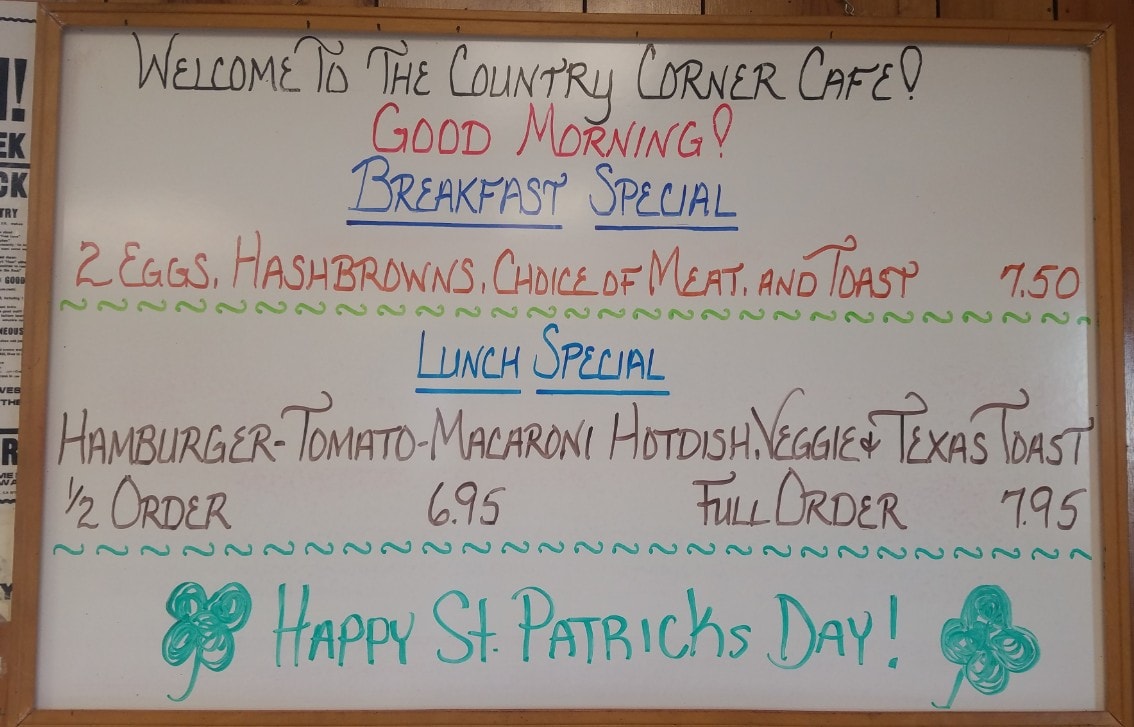 WELCOME TO THE COUNTRY CORNER CAFE!
GOOD MORNING!
BREAKFAST SPECIAL
2 EGGS, HASHBROWNS, CHOICE OF MEAT, AND TOAST 7.50
LUNCH SPECIAL
HAMBURGER-TOMATO-MACARONI HOTDISH, VEGGIE & TEXAS TOAST
1/2 ORDER 6.95 FULL ORDER 7.95
HAPPY St. PATRICKS DAY!